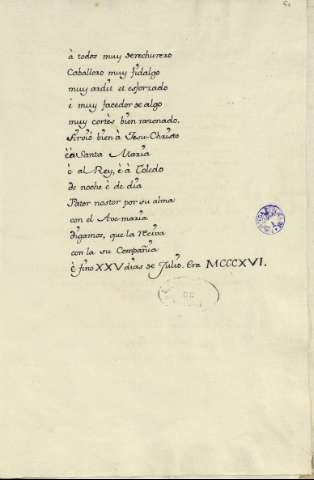 à todos muy derechurero
Caballero muy fidalgo
muy ardit et esforzado
é muy facedor de algo
muy cortès bien razonado,
Sirvió bien à Jesu-Christo
é à Santa Maria
é al Rey, é à Toledo
de noche é de dia
Pater noster por su alma
con el Ave maria
digamos, que la reciva
con la su Compañia
è fino XXV dias de Julio. Era MCCCXVI.
DE